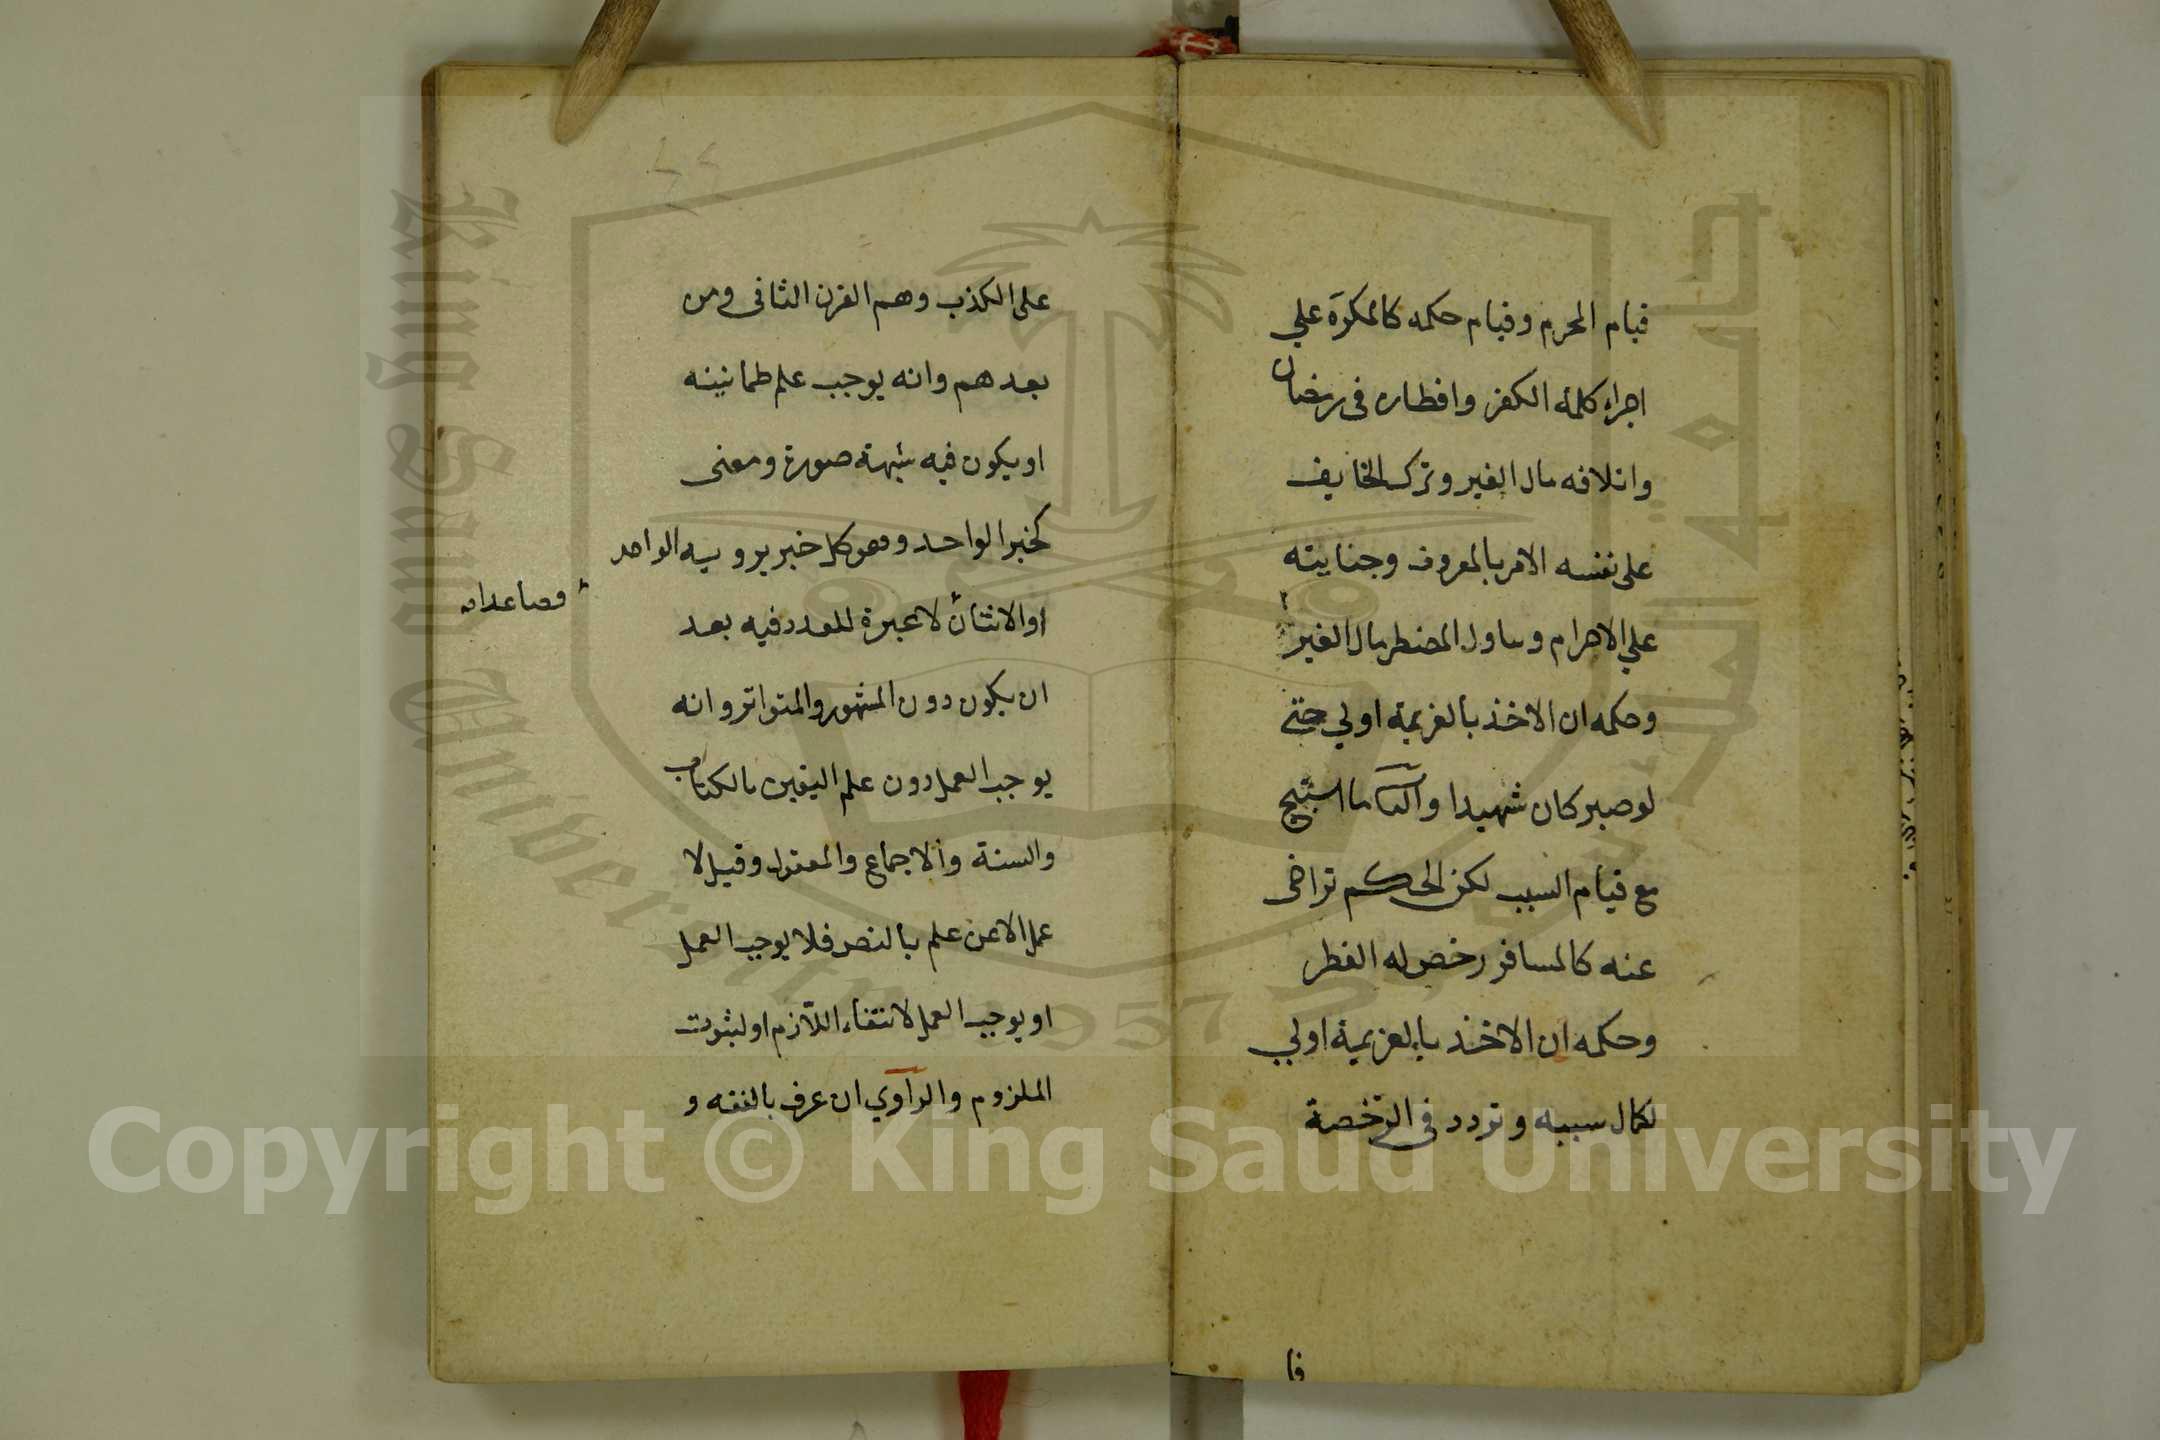 قيام المحرم وقيام حكمه كالمكره علي
اجراء كلمة الكفر وافطاره في رمضان
واتلافه مال الغير وترك الخايف
على نفسه الامر بالمعروف وجنايته
علي الاحرام وتناول المضطر مال الغير
وحكمه ان الاخذ بالعزيمة اولي حتى
لو صبر كان شهيدا والثاني ما استبيح
مع قيام السبب لكن الحكم تراخى
عنه كالمسافر رخص له الفطر
وحكمه ان الاخذ بالعزيمة اولي
لكمال سببه وتردد في الرخصة
فا
على الكذب وهم القرن الثاني ومن
بعدهم وانه يوجب علم طمانينه
او يكون فيه شبهة صورة ومعنى
كخبر الواحد وهو كل خبر يرويه الواحد
او الاثنان لا عبرة للعدد فيه بعد
فصاعدا
ان يكون دون المشهور والمتواتر وانه
يوجب العمل دون علم اليقين بالكتاب
والسنة والاجماع والمعقول وقيل لا
عمل الا عن علم بالنص فلا يوجب العمل
او يوجب العمل لانتفاء اللازم او لثبوت
الملزوم والراوي ان عرف بالفقه و
King Saud University
جامعة الملك سعود
1957
Copyright © King Saud University